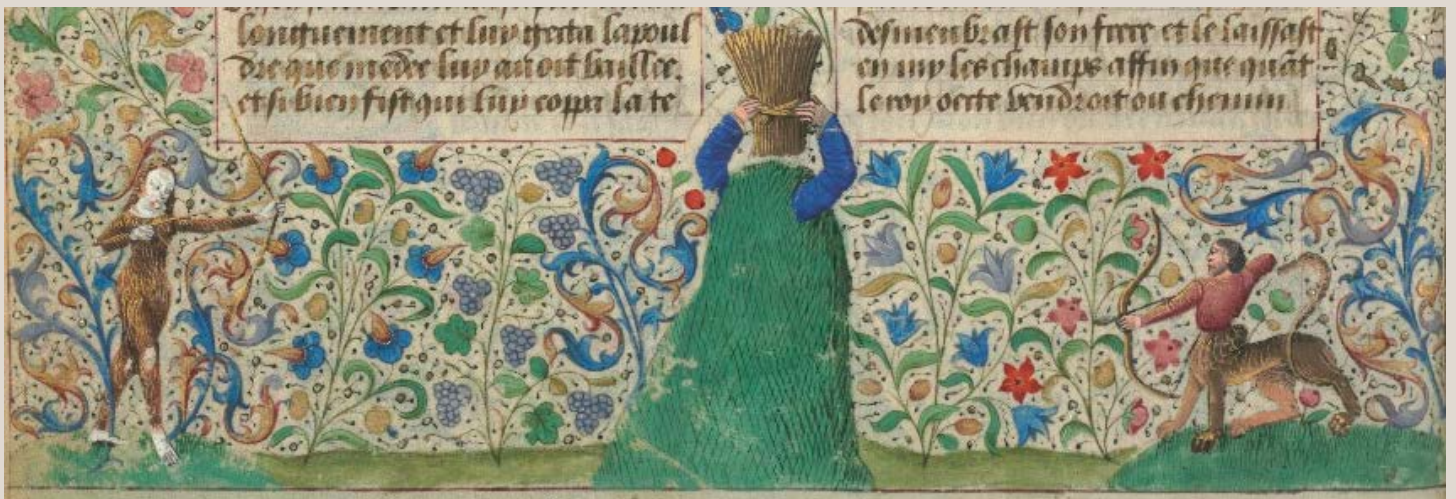 longuement et luy getta la poul
dre que medee luy auoit baillee.
et si bien fist qui luy coppa la te
desmenbrast son frere et le laissast
en my les champs affin que quãt
le roy oette vendroit ou chemin